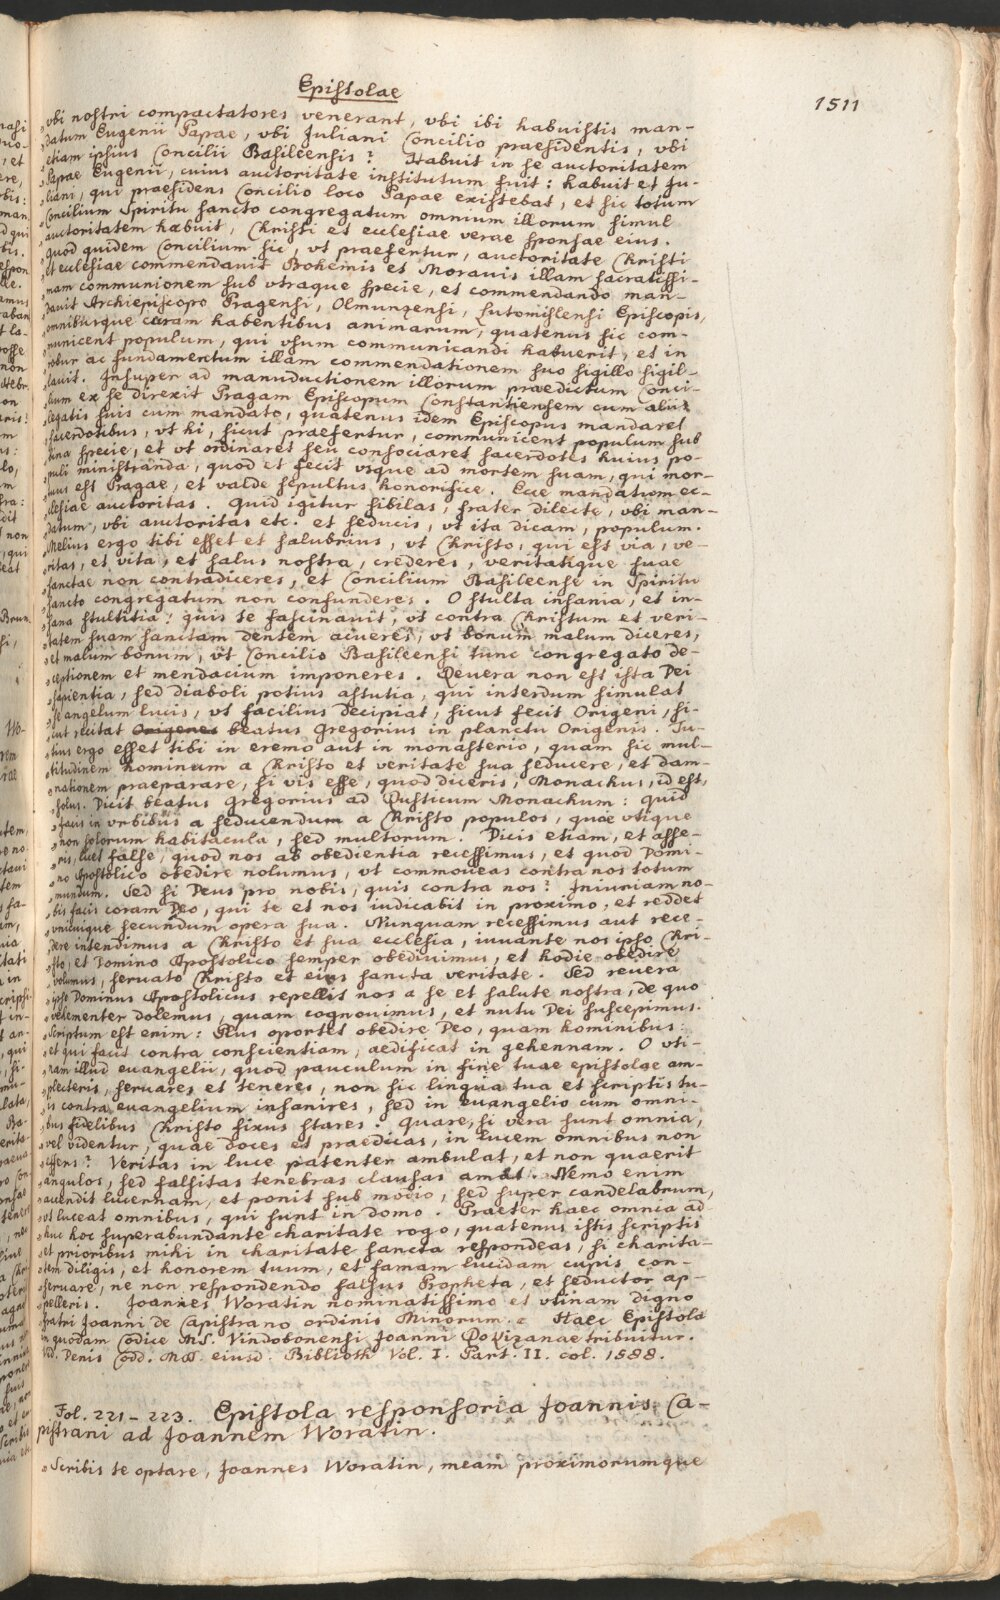 Epistolae
1511
„vbi nostri compactatores venerant, vbi ibi habuistis man-
„datum Eugenii Papae, vbi Juliani Concilio praesidentis, vbi
„etiam ipsius Concilii Basileensis? Habuit in se auctoritatem
„Papae Eugenii, cuius auctoritate institutum fuit: habuit et Ju-
„liani, qui praesidens Concilio loco Papae existebat, et sic totum
„Concilium Spiritu sancto congregatum omnium illorum simul
„auctoritatem habuit, Christi et ecclesiae verae sponsae eius.
„quod quidem Concilium sic, vt praefertur, auctoritate Christi
„et ecclesiae commendauit Bohemis et Morauis illam sacratissi-
„mam communionem sub vtraque specie, et commendando man-
„dauit Archiepiscopo Pragensi, Olmungensi, Lutomislensi Episcopis,
„omnibusque curam habentibus animarum, quatenus sic com-
„municent populum, qui vsum communicandi habuerit, et in
„robur ac fundamentum illam commendationem suo sigillo sigil-
„lauit. Insuper ad manuductionem illorum praedictum Conci-
„lium ex se direxit Pragam Episcopum Constantiensem cum aliis
„legatis suis cum mandato, quatenus idem Episcopus mandaret
„sacerdotibus, vt hi, sicut praefertur, communicent populum sub
„bina specie, et vt ordinaret seu consociaret sacerdotes huius po-
„puli ministranda, quod et fecit vsque ad mortem suam, qui mor-
„tuus est Pragae, et valde sepultus honorifice. Ecce mandatum ec-
„clesiae auctoritas. Quid igitur sibilas, frater dilecte, vbi man-
„datum, vbi auctoritas etc. et seducis, vt ita dicam, populum.
„Melius ergo tibi esset et salubrius, vt Christo, qui est via, ve-
„ritas, et vita, et salus nostra, crederes, veritatique suae
„sanctae non contradiceres, et Concilium Basileense in Spiritu
„sancto congregatum non confunderes. O stulta insania, et in-
„sana stultitia! quis te fascinauit, vt contra Christum et veri-
„tatem suam sanctam dentem acueres, vt bonum malum diceres,
„et malum bonum, vt Concilio Basileensi tunc congregato de-
„ceptionem et mendacium imponeres. Reuera non est ista Dei
„sapientia, sed diaboli potius astutia, qui interdum simulat
„se angelum lucis, vt facilius decipiat, sicut fecit Origeni, si-
„cut recitat Origenes beatus Gregorius in planctu Origenis. Tu-
„tius ergo esset tibi in eremo aut in monasterio, quam sic mul-
„titudinem hominum a Christo et veritate sua seducere, et dam-
„nationem praeparare, si vis esse, quod diceris, Monachus, id est,
„solus. Dicit beatus Gregorius ad Rusticum Monachum: quid
„facis in vrbibus a seducendum a Christo populos, quae vtique
„non solorum habitacula, sed multorum. Dicis etiam, et asse-
„ris, licet false, quod nos ab obedientia recessimus, et quod Domi-
„no Apostolico obedire nolumus, vt commoueas contra nos totum
„mundum. Sed si Deus pro nobis, quis contra nos? Iniuriam no-
„bis facis coram Deo, qui te et nos iudicabit in proximo, et reddet
„vnicuique secundum opera sua. Nunquam recessimus aut rece-
„dere intendimus a Christo et sua ecclesia, iuuante nos ipso Chri-
„sto, et Domino Apostolico semper obediuimus, et hodie obedire
„volumus, seruato Christo et eius sancta veritate. Sed reuera
„ipse Dominus Apostolicus repellit nos a se et salute nostra, de quo
„vehementer dolemus, quam cognouimus, et nutu Dei suscepimus.
„Scriptum est enim: Plus oportet obedire Deo, quam hominibus:
„et qui facit contra conscientiam, aedificat in gehennam. O vti-
„nam illud euangelii, quod pauculum in fine tuae epistolae am-
„plecteris, seruares et teneres, non sic lingua tua et scriptis tu-
„is contra euangelium insanires, sed in euangelio cum omni-
„bus fidelibus Christo fixus stares. Quare, si vera sunt omnia,
„vel videntur, quae doces et praedicas, in lucem omnibus non
„offers? Veritas in luce patenter ambulat, et non quaerit
„angulos, sed falsitas tenebras clausas amat. Nemo enim
„accendit lucernam, et ponit sub modio, sed super candelabrum,
„vt luceat omnibus, qui sunt in domo. Praeter haec omnia ad-
„huc hoc superabundante charitate rogo, quatenus istis scriptis
„et prioribus mihi in charitate sancta respondeas, si charita-
„tem diligis, et honorem tuum, et famam lucidam cupis con-
„seruare, ne non respondendo falsus Propheta, et seductor ap-
„pelleris. Joannes Woratin nominatissimo et vtinam digno
„fratri Joanni de Capistrano ordinis Minorum. „ Haec Epistola
in quodam Codice MS. Vindobonensi Joanni Rokizanae tribuitur.
Vid. Denis Codd. MSS. eiusd. Biblioth Vol. I. Part. II. col. 1588.
Fol. 221-223. Epistola responsoria Joannis Ca-
pistrani ad Joannem Woratin.
„Scribis te optare, Joannes Woratin, meam proximorumque